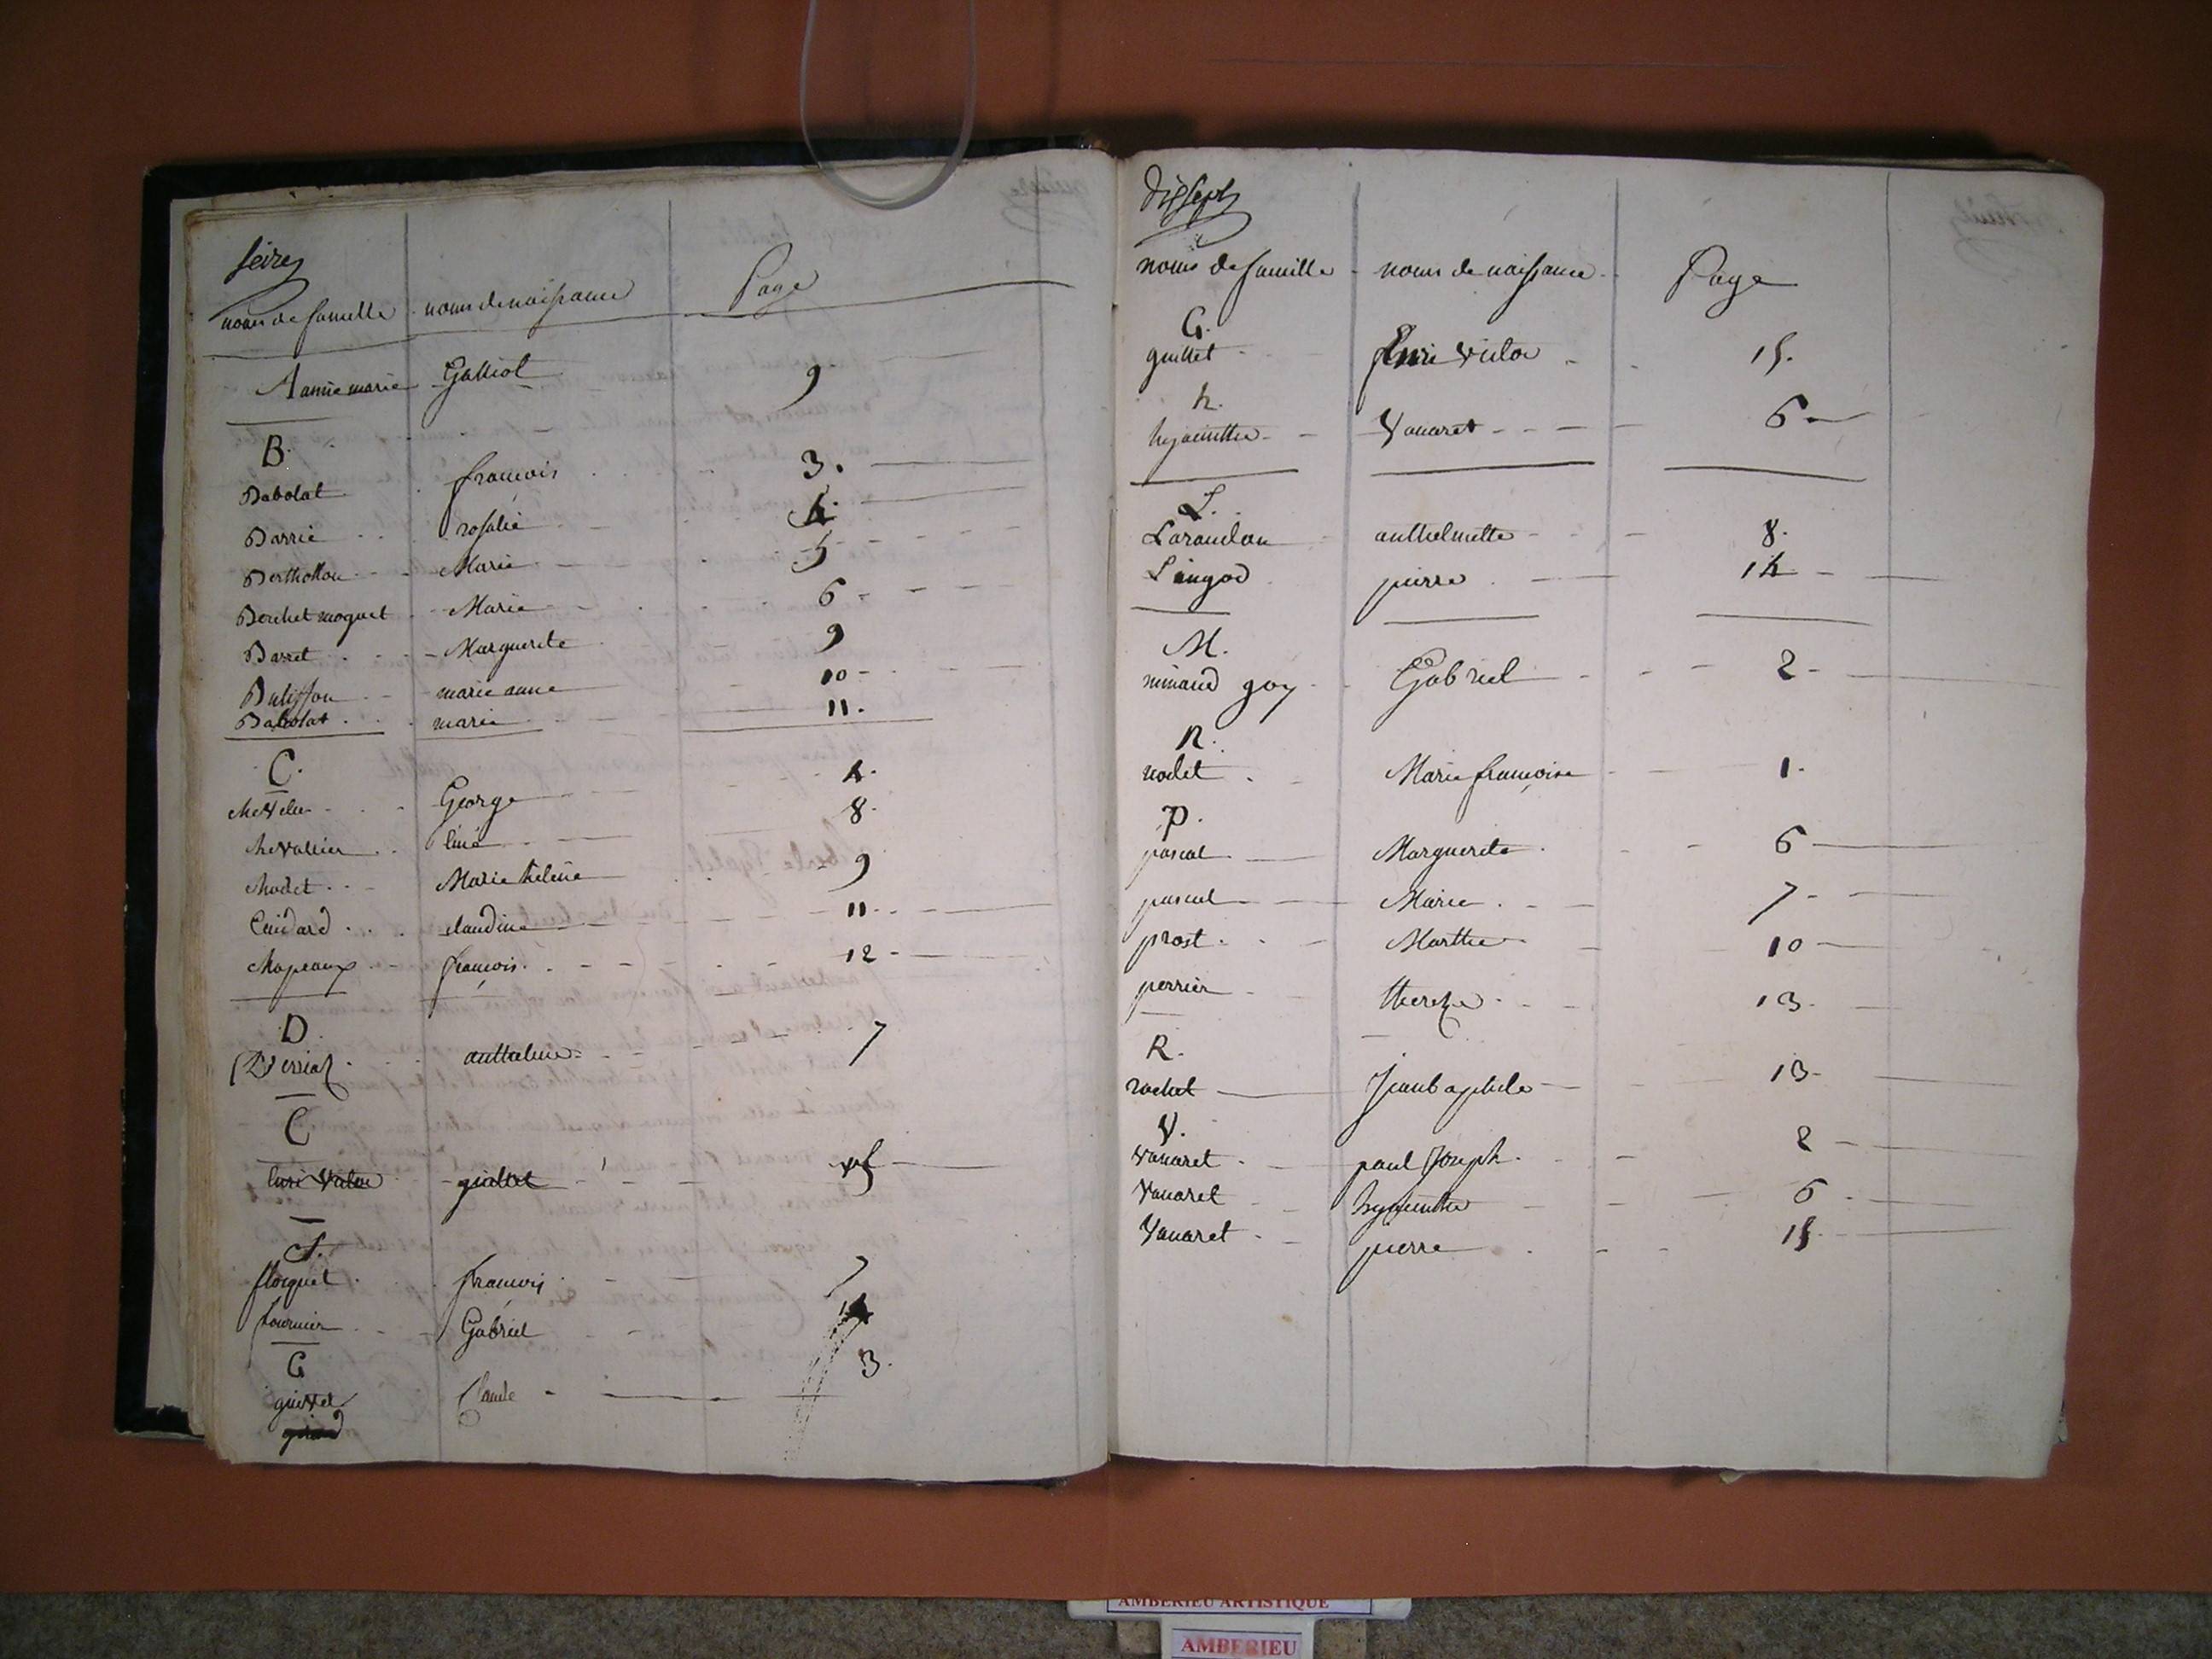 seize
noms de famille noms de naissance Page
A anne marie Galliot 9
B.
Babolat françois 3.
Barrie rosalie 4.
Berthollon Marie 5
Berchet moguet Marie 6
Barret Marguerite 9
marie anne 10
Babolat marie 11.
C.
chevelu George 4.
chevallier 8.
chodet Marie helene 9
Cuidard claudine 11.
chapeaux françois 12
D.
anthelme 7
guillet
F.
floquet françois 7
fournier Gabriel
G
Claude 3.
dix sept
noms de famille noms de naissance Page
G.
guillet victor 15.
h.
hyacinthe Vanaret 6
L.
anthelmette 8.
Lingod pierre 14
M.
minand goy Gabriel 2
N.
nodet Marie françoise 1.
P.
pascal Marguerite 6
pascal Marie 7
prost Marthe 10
perrier 13
R.
rochet Jean baptiste 13
V.
Vanaret paul Joseph 2
Vanaret hyacinthe 6
Vanaret pierre 15
AMBERIEU ARTISTIQUE
AMBERIEU